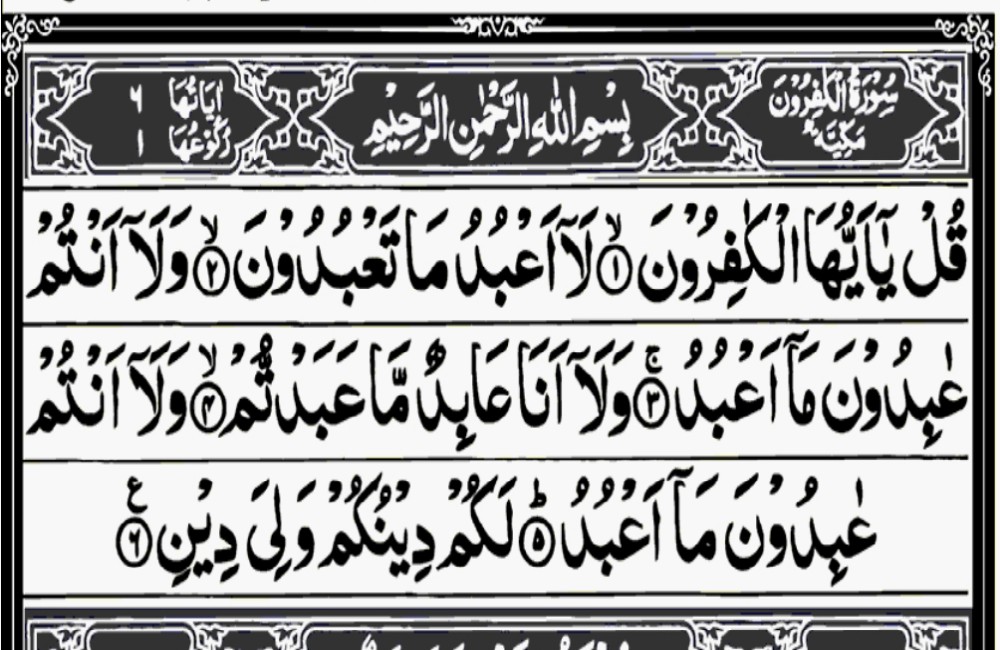 سُوْرَةُ الْكٰفِرُوْنَ مَكِّيَّةٌ
بِسْمِ اللّٰهِ الرَّحْمٰنِ الرَّحِيْمِ
اٰيَاتُهَا ٦
رُكُوْعُهَا ١
قُلْ يٰۤاَيُّهَا الْكٰفِرُوْنَ ۙ﴿۱﴾ لَاۤ اَعْبُدُ مَا تَعْبُدُوْنَ ۙ﴿۲﴾ وَلَاۤ اَنْتُمْ
عٰبِدُوْنَ مَاۤ اَعْبُدُ ۚ﴿۳﴾ وَلَاۤ اَنَا عَابِدٌ مَّا عَبَدْتُّمْ ۙ﴿۴﴾ وَلَاۤ اَنْتُمْ
عٰبِدُوْنَ مَاۤ اَعْبُدُ ؕ﴿۵﴾ لَكُمْ دِيْنُكُمْ وَلِىَ دِيْنِ ﴿۶﴾ ع